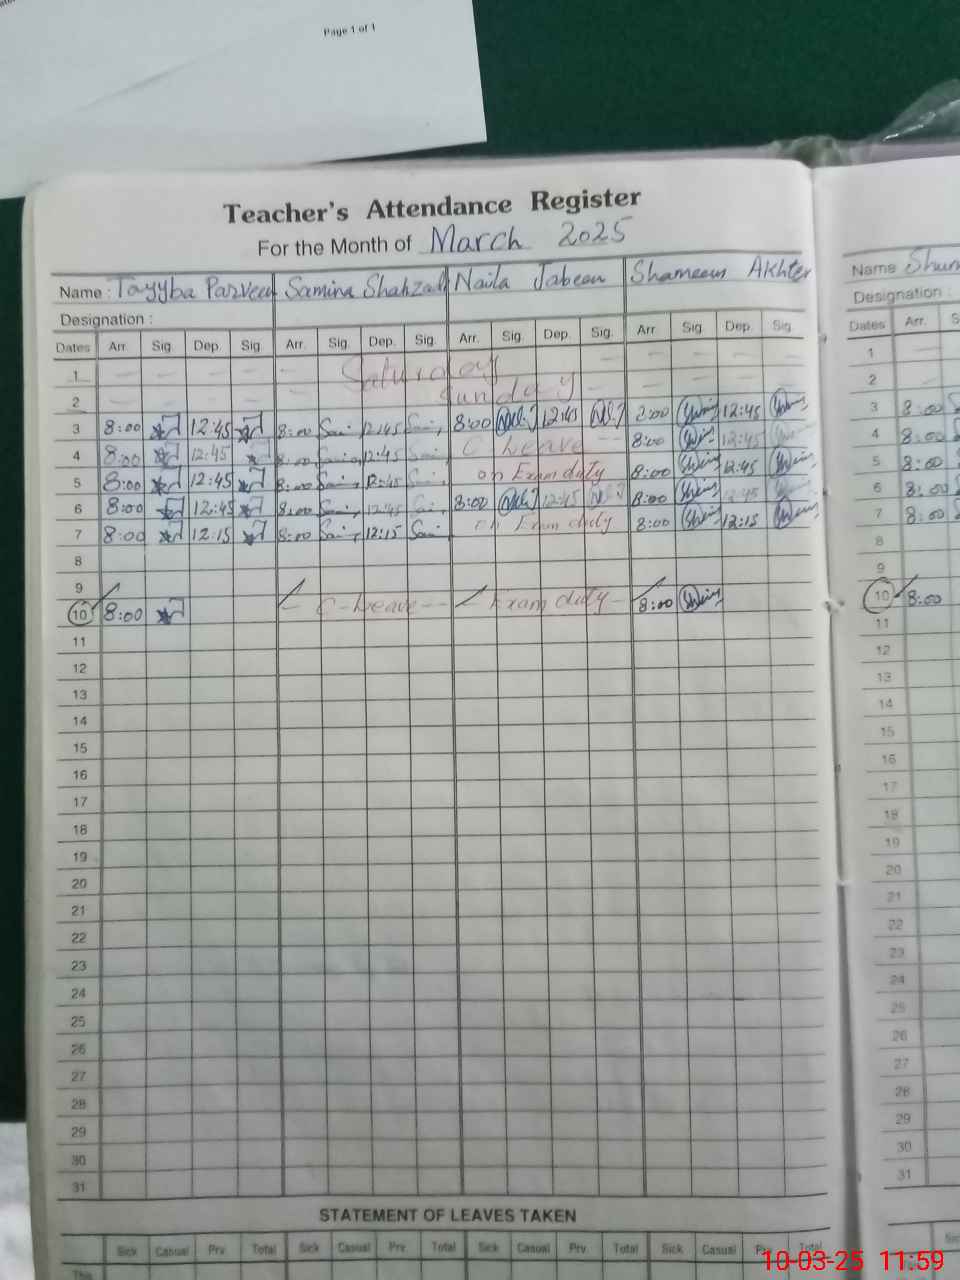 Page 1 of 1
Teacher's Attendance Register
For the Month of March 2025
Name : Tayyba Parveen Samina Shahzad Naila Jabeen Shameem Akhter Name
Designation : Designation :
Dates Arr. Sig. Dep. Sig. Arr. Sig. Dep. Sig. Arr. Sig. Dep. Sig. Arr. Sig. Dep. Sig. Dates Arr.
1 — — — — — Saturday — — — — — 1 —
2 — — — — — Sunday — — — — — 2 —
3 8:00 12:45 8:00 Sam 12:45 Sam 8:00 12:45 8:00 12:45 3 8:00
4 8:00 12:45 8:00 Sam 12:45 Sam C leave -- 8:00 12:45 4 8:00
5 8:00 12:45 8:00 Sam 12:45 Sam on Exam duty 8:00 12:45 5 8:00
6 8:00 12:45 8:00 Sam 12:45 Sam 8:00 12:45 8:00 12:45 6 8:00
7 8:00 12:15 8:00 Sam 12:15 Sam on Exam duty 8:00 12:15 7 8:00
8 8
9 9
10 8:00 - C-Leave-- - Exam duty- 8:00 10 8:00
11 11
12 12
13 13
14 14
15 15
16 16
17 17
18 18
19 19
20 20
21 21
22 22
23 23
24 24
25 25
26 26
27 27
28 28
29 29
30 30
31 31
STATEMENT OF LEAVES TAKEN
Sick Casual Prv. Total Sick Casual Prv. Total Sick Casual Prv. Total Sick Casual Prv. Total
This
10-03-25 11:59